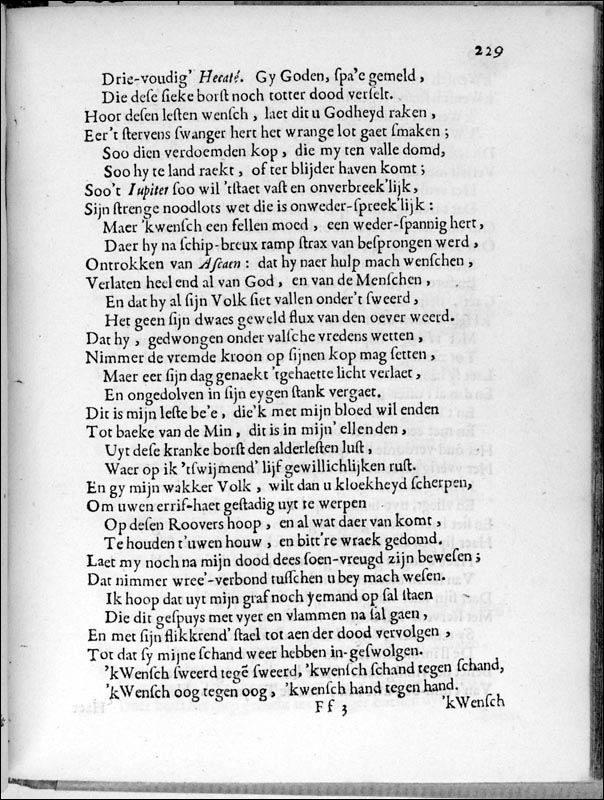 229
Drie-voudig' Hecaté. Gy Goden, spa'e gemeld,
Die dese sieke borst noch totter dood verselt.
Hoor desen lesten wensch, laet dit u Godheyd raken,
Eer't stervens swanger hert het wrange lot gaet smaken;
Soo dien verdoemden kop, die my ten valle domd,
Soo hy te land raekt, of ter blijder haven komt;
Soo't Iupiter soo wil 'tstaet vast en onverbreek'lijk,
Sijn strenge noodlots wet die is onweder-spreek'lijk:
Maer 'kwensch een fellen moed, een weder-spannig hert,
Daer hy na schip-breux ramp strax van besprongen werd,
Ontrokken van Ascaen: dat hy naer hulp mach wenschen,
Verlaten heel end al van God, en van de Menschen,
En dat hy al sijn Volk siet vallen onder't sweerd,
Het geen sijn dwaes geweld flux van den oever weerd.
Dat hy, gedwongen onder valsche vredens wetten,
Nimmer de vremde kroon op sijnen kop mag setten,
Maer eer sijn dag genaekt 'tgehaette licht verlaet,
En ongedolven in sijn eygen stank vergaet.
Dit is mijn leste be'e, die'k met mijn bloed wil enden
Tot baeke van de Min, dit is in mijn' ellenden,
Uyt dese kranke borst den alderlesten lust,
Waer op ik 'tswijmend' lijf gewillichlijken rust.
En gy mijn wakker Volk, wilt dan u kloekheyd scherpen,
Om uwen errif-haet gestadig uyt te werpen
Op desen Roovers hoop, en al wat daer van komt,
Te houden t'uwen houw, en bitt're wraek gedomd.
Laet my noch na mijn dood dees soen-vreugd zijn bewesen;
Dat nimmer wree'-verbond tusschen u bey mach wesen.
Ik hoop dat uyt mijn graf noch yemand op sal staen
Die dit gespuys met vyer en vlammen na sal gaen,
En met sijn flikkrend' stael tot aen der dood vervolgen,
Tot dat sy mijne schand weer hebben in-geswolgen.
'kWensch sweerd tegẽ sweerd, 'kwensch schand tegen schand,
'kWensch oog tegen oog, 'kwensch hand tegen hand.
Ff 3 'kWensch